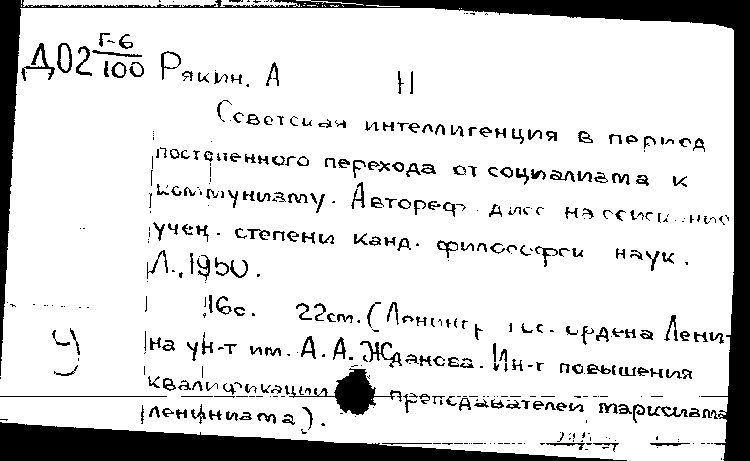 Д02 Г-6/100 Рякин, А Н
Советская интеллигенция в период
постепенного перехода от социализма к
коммунизму. Автореф. дисс на соиск. ние
учен. степени канд. философск наук.
Л., 1950.
16с. 22см. (Ленингр гос. ордена Лени-
У на ун-т им. А. А. Жданова. Ин-т повышения
квалификации преподавателей марксизма
ленинизма).